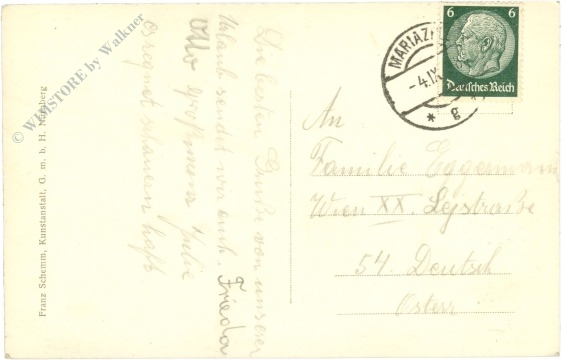 6 6
Deutsches Reich
MARIAZ
-4.IX
* g
An
Familie Eggemann
Wien XX.
54. Deutsch
Österr
Die besten Grüße von unserer
Urlaub sendet wir euch. Frieda
Otto Großmama Julie
Es regnet schauerhaft
Franz Schemm, Kunstanstalt, G. m. b. H. Nürnberg
© WEBSTORE by Walkner